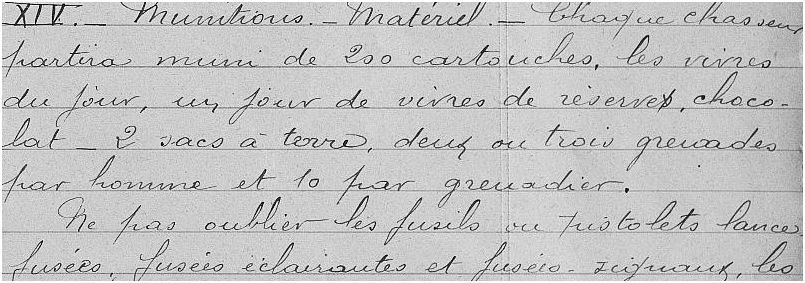 XIV. _ Munitions. _ Matériel. _ Chaque chasseur
partira muni de 200 cartouches, les vivres
du jour, un jour de vivres de réserves, choco-
lat _ 2 sacs à terre, deux ou trois grenades
par homme et 10 par grenadier.
Ne pas oublier les fusils ou pistolets lance
fusées, fusées éclairantes et fusées-signaux, les